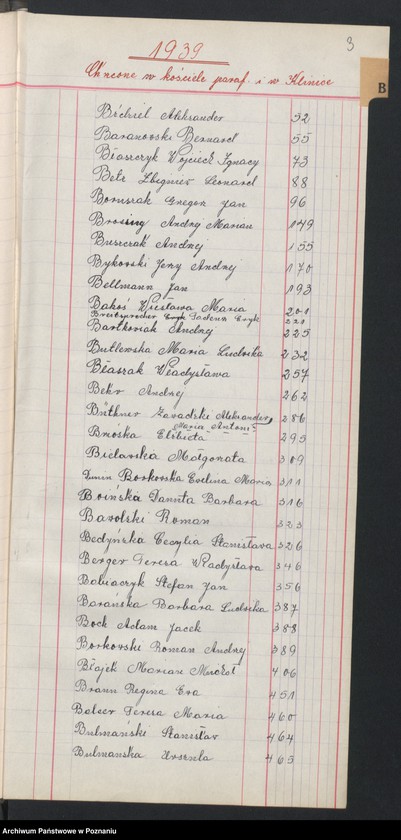 3
1939
Chrzcone w kościele paraf. i w Klinice
B
Bechiel Aleksander 32
Baranowski Bernard 55
Błaszczyk Wojciech Ignacy 73
Betz Zbigniew Leonard 88
Borusiak Gregor Jan 96
Brosing Andrzej Marian 149
Buszczak Andrzej 155
Bykowski Jerzy Andrzej 170
Bellmann Jan 193
Bakoś Wiesława Maria 201
Tadeusz Eryk 221
Bartkowiak Andrzej 225
Butlewska Maria Ludwika 232
Błaszak Władysława 257
Bekr Andrzej 262
Büthner Zawadzki Aleksander 286
Maria Antoni
Brzóska Elżbieta 295
Bielawska Małgorzata 309
Dunin Borkowska Evelina Maria 311
Boińska Danuta Barbara 316
Barolski Roman 323
Bedyńska Cecylia Stanisława 326
Berger Teresa Władysława 346
Babiaczyk Stefan Jan 356
Barańska Barbara Ludwika 387
Bock Adam Jacek 388
Borkowski Roman Andrzej 389
Błajek Marian 406
Brann Regina Ewa 451
Balcer Teresa Maria 460
Bulmański Stanisław 464
Bulmanska Urszula 465
Archiwum Państwowe w Poznaniu